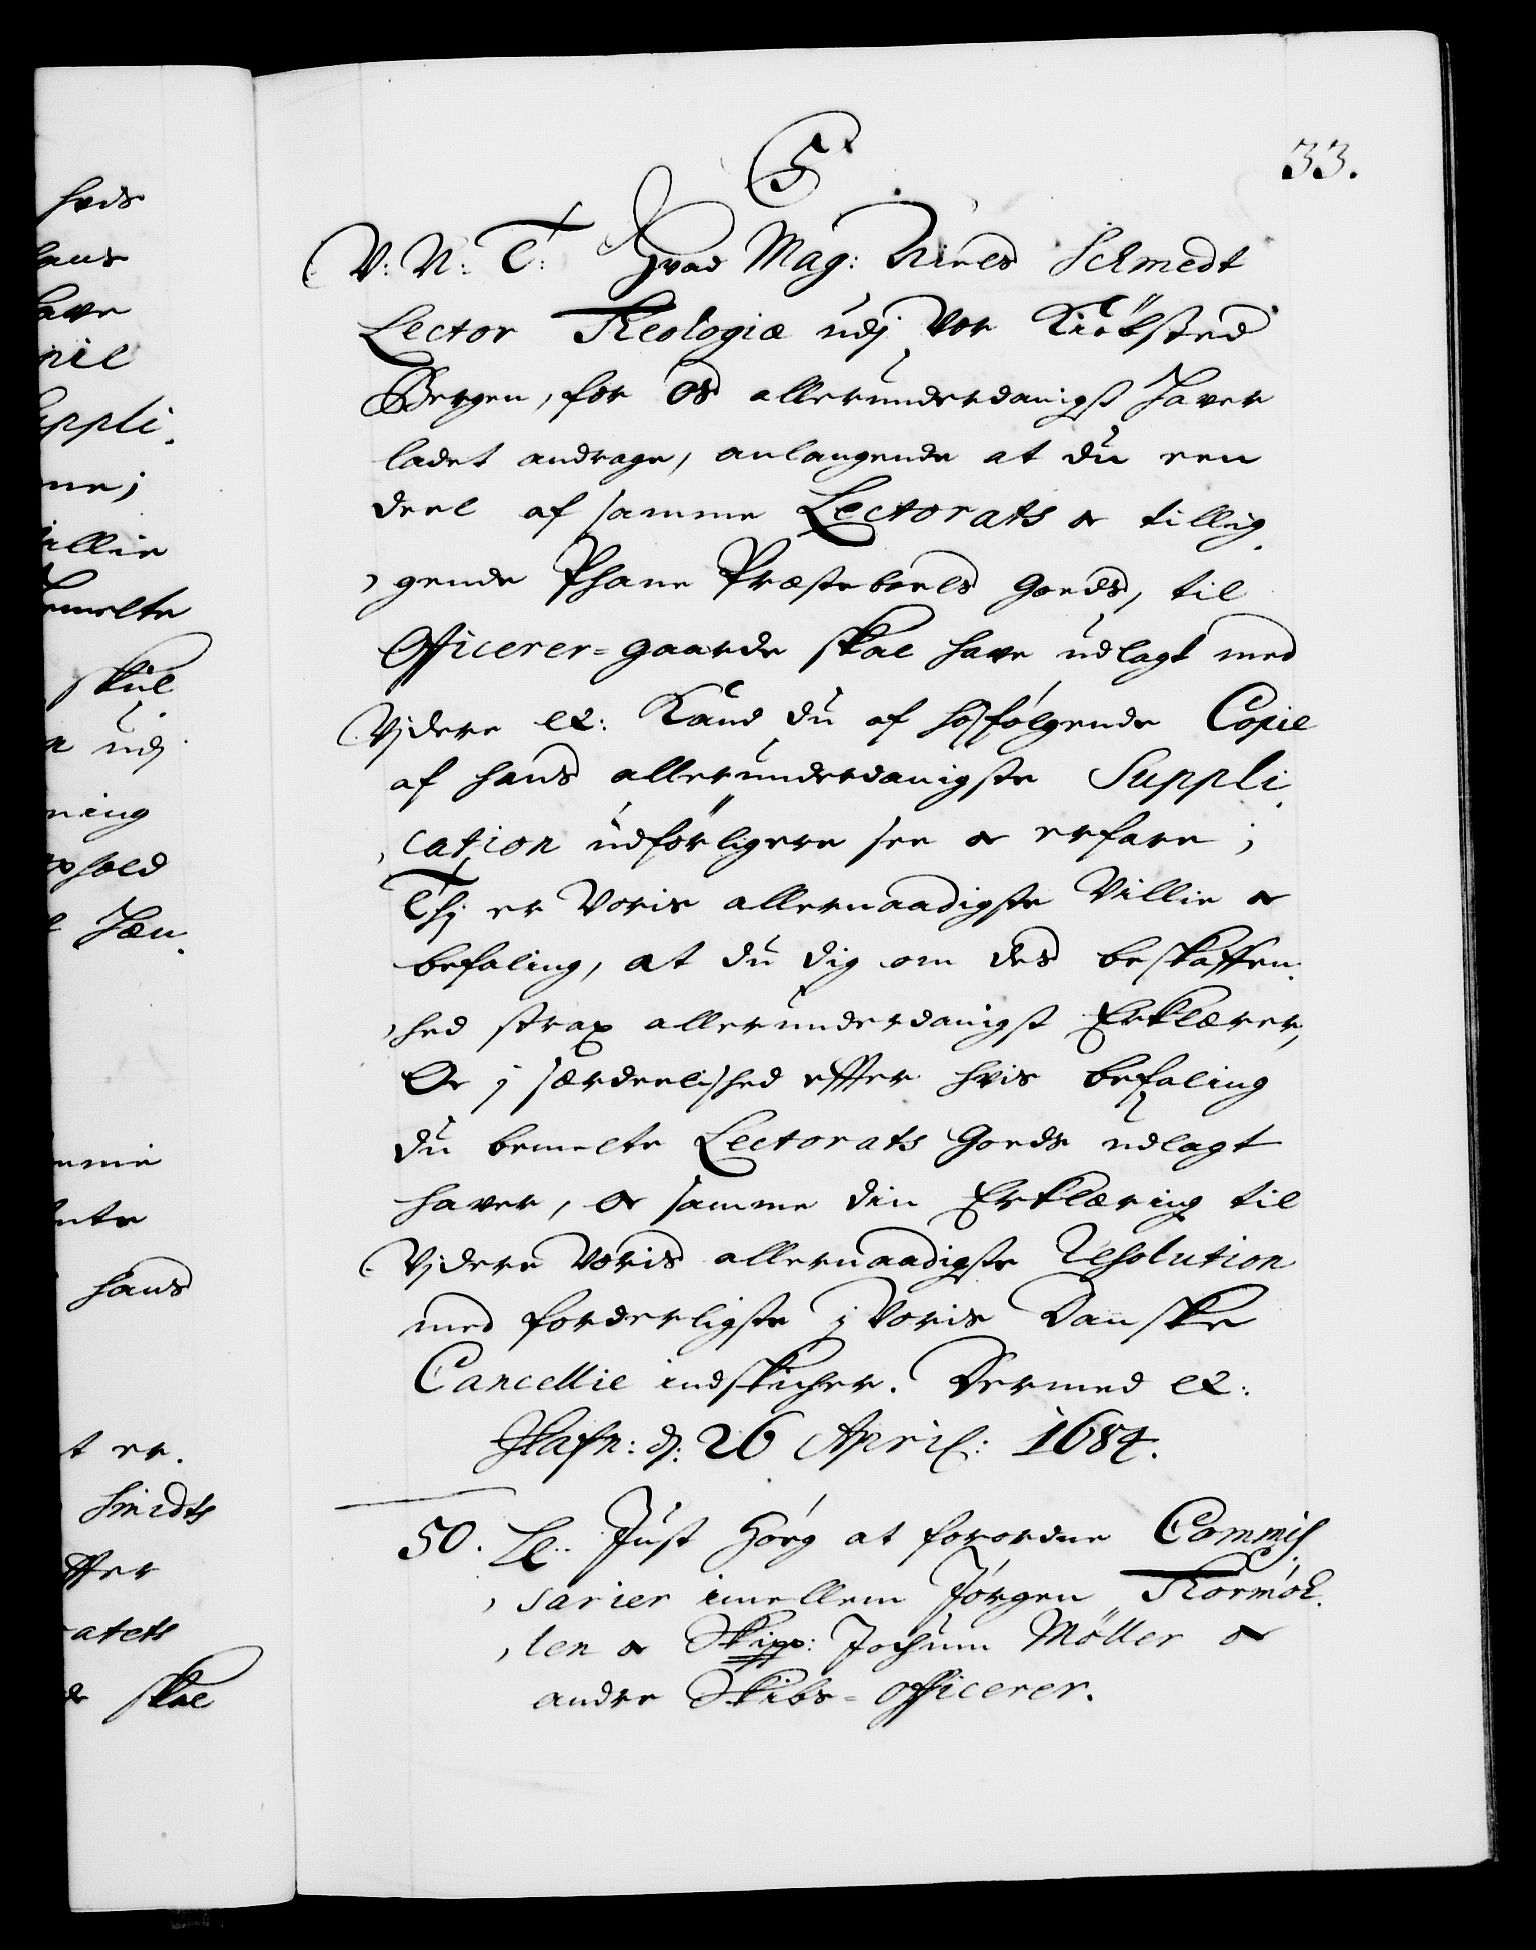 33.
V: N: T: Hvad Mag: Niels Schmedt
Lector Theologiæ udj Vor Kiøbsted
Bergen, for Os allerunderdanigst haver
ladet andrage, anlangende at du een
deel af samme Lectorats oc tillig
gende Phane Præsteboels Goeds, til
Officerer-gaarde skal have udlagt med
Vjdere etc: Kand du af hosfølgende Copie
af hans allerunderdanigste Suppli
cation udførligere see oc erfare;
Thj er Voris allernaadigste Villie oc
befaling, at du dig om des beskaffen
hed strax allerunderdanigst Erklærer,
Oc j særdeelished effter hvis befaling
du bemelte Lectorats Goeds udlagt
haver, oc samme din Erklæring til
Vjdere Voris allernaadigste Resolution
med forderligste j Voris Danske
Cancellie indskicher. Dermed etc:
Hafn: d: 26 April: 1684.
50. Le.. Just Høeg at forordne Commis
sarier imellem Jørgen Thormøh
len oc Skipp: Jochum Møller oc
andre Skibs-officerer.
hvds
hans
have
uppli
villie
bemelte
skul
udj
ning
ophold
hans
t er.
Smidts
effter
skal